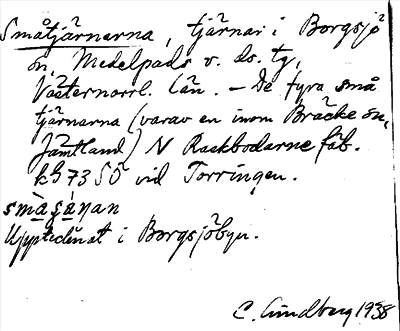 Småtjärnarna, tjärnar i Borgsjö
sn, Medelpads v. ds. tg,
Västernorrl. län. – De fyra små
tjärnarna (varav en inom Bräcke sn,
Jämtland) N Raskbodarne fäb.
k573SÖ vid Torringen.
småʒáŋan
Upptecknat i Borgsjöbyn.
C. Lindberg 1938